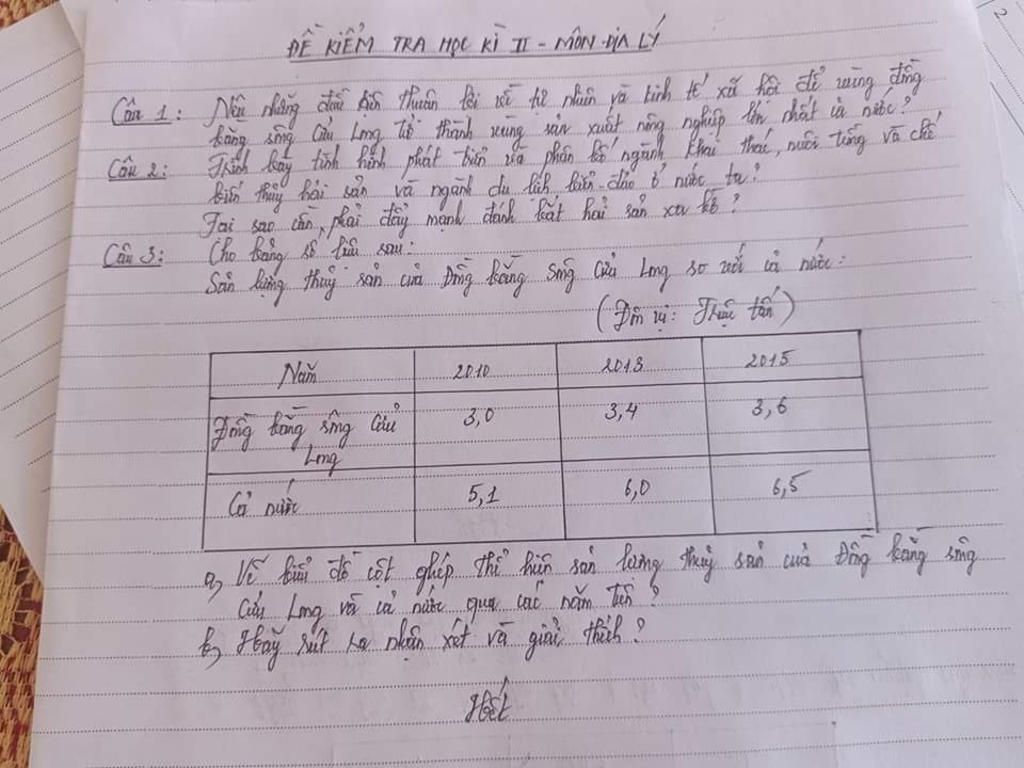 ĐỀ KIỂM TRA HỌC KÌ II - MÔN ĐỊA LÝ
Câu 1: Nêu những điều kiện thuận lợi về tự nhiên và kinh tế xã hội để vùng đồng
bằng sông Cửu Long trở thành vùng sản xuất nông nghiệp lớn nhất cả nước?
Câu 2: Trình bày tình hình phát triển và phân bố ngành khai thác, nuôi trồng và chế
biến thủy hải sản và ngành du lịch biển-đảo ở nước ta?
Tại sao cần phải đẩy mạnh đánh bắt hải sản xa bờ?
Câu 3: Cho bảng số liệu sau:
Sản lượng thuỷ sản của Đồng bằng Sông Cửu Long so với cả nước:
(Đơn vị: Triệu tấn)
Năm 2010 2013 2015
Đồng bằng sông Cửu 3,0 3,4 3,6
Long
Cả nước 5,1 6,0 6,5
a, Vẽ biểu đồ cột ghép thể hiện sản lượng thuỷ sản của Đồng bằng sông
Cửu Long và cả nước qua các năm trên?
b, Hãy rút ra nhận xét và giải thích?
Hết
2